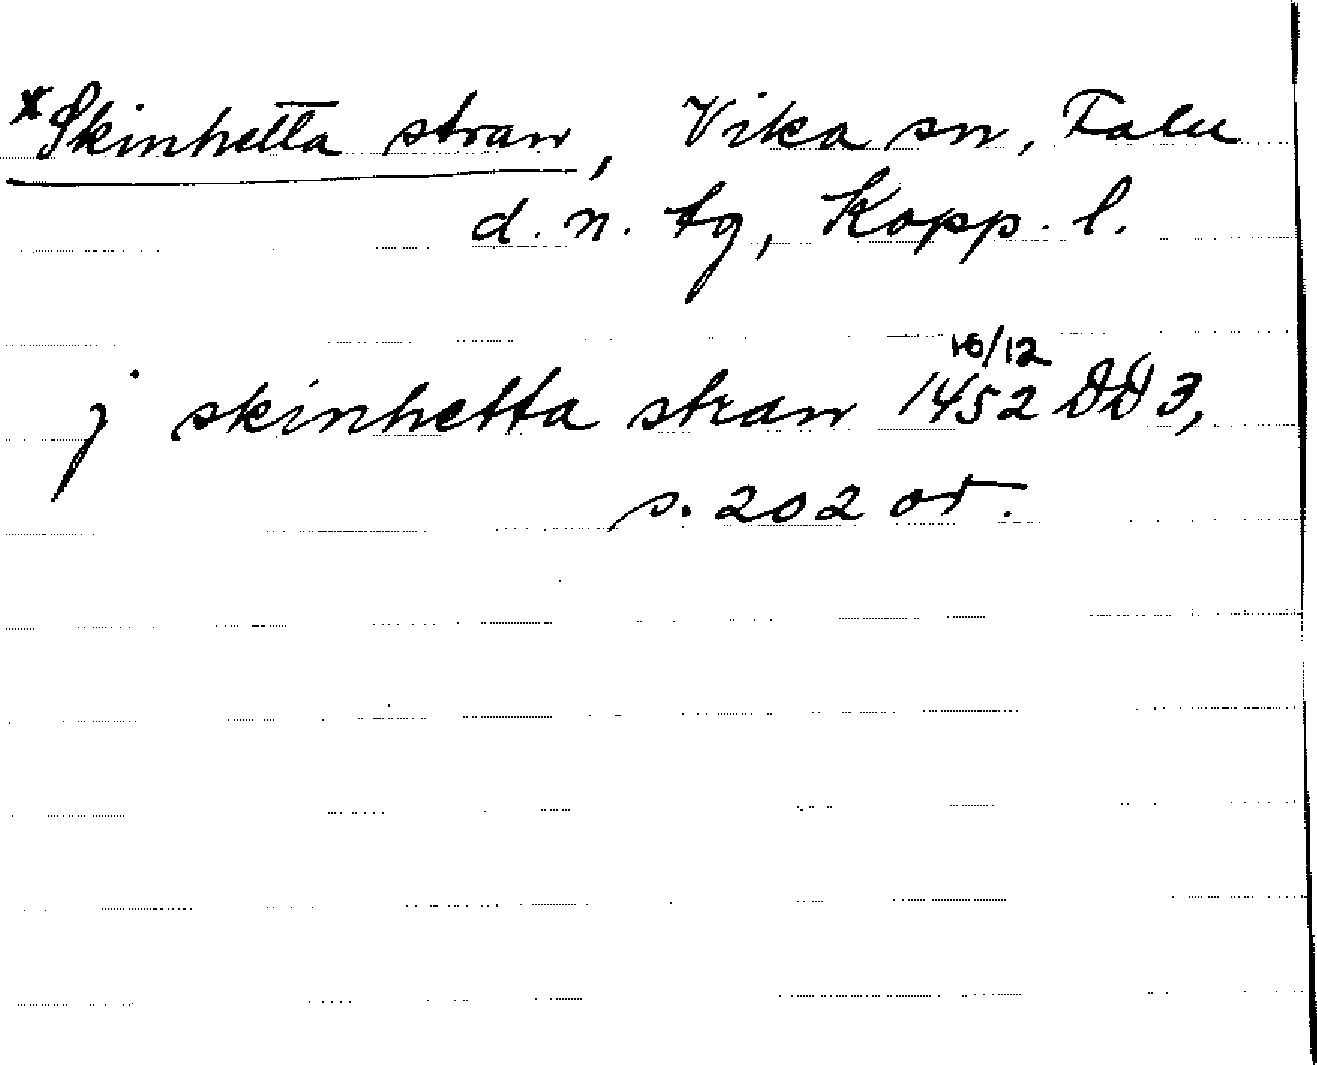 *Skinhetta stran, Vika sn, Falu
d. n. tg, Kopp. l.
j skinhetta stran 16/12 1452 DD 3,
s. 202 or.